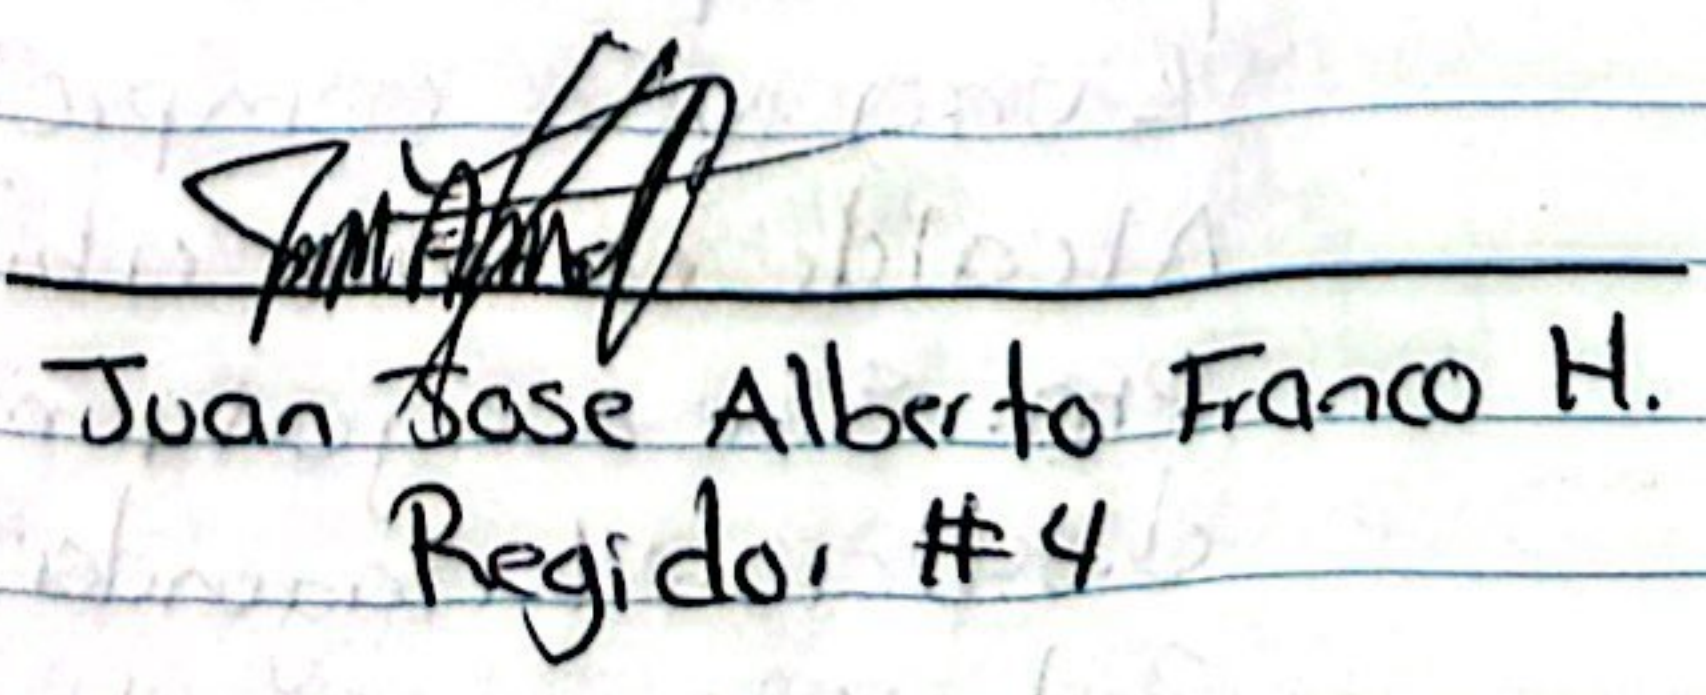 Juan Jose Alberto Franco H.
Regidor #4